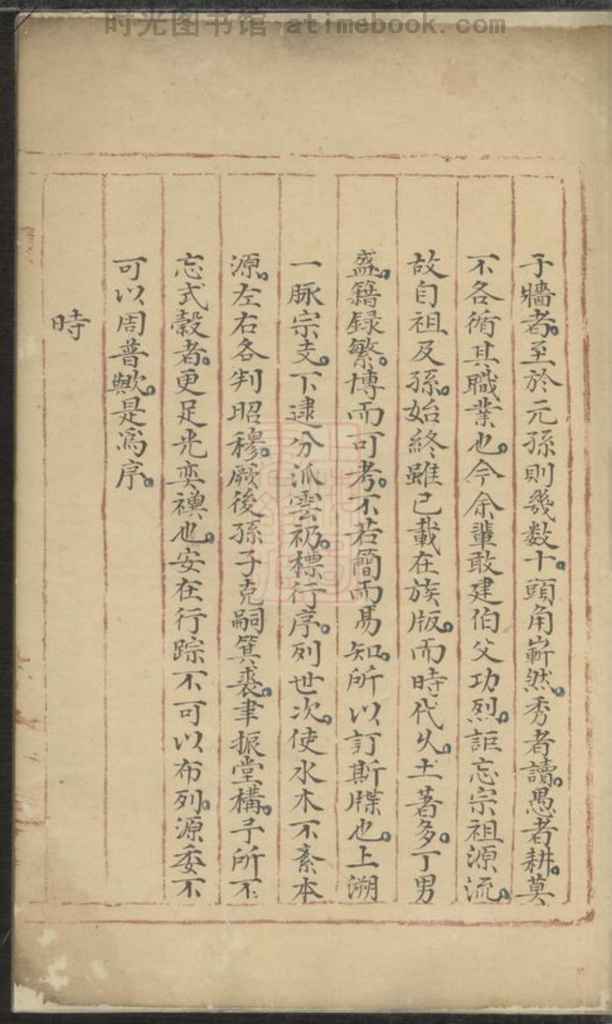 时光图书馆 - atimebook.com
于牆者。至於元孫則幾数十。頭角嶄然。秀者讀。愚者耕。莫
不各循其職業也。今余輩敢建伯父功烈。詎忘宗祖源流。
故自祖及孫。始終雖已載在族版。而時代久。土著多。丁男
盛。籍録繁。博而可考。不若簡而易知。所以訂斯牒也。上溯
一脉宗支。下逮分派雲礽。標行序。列世次。使水木不紊本
源。左右各判昭穆。厥後孫子克嗣箕裘。聿振堂構。子所不
忘式穀者。更足光奕禩也。安在行踪不可以布列。源委不
可以周普歟。是爲序。
時